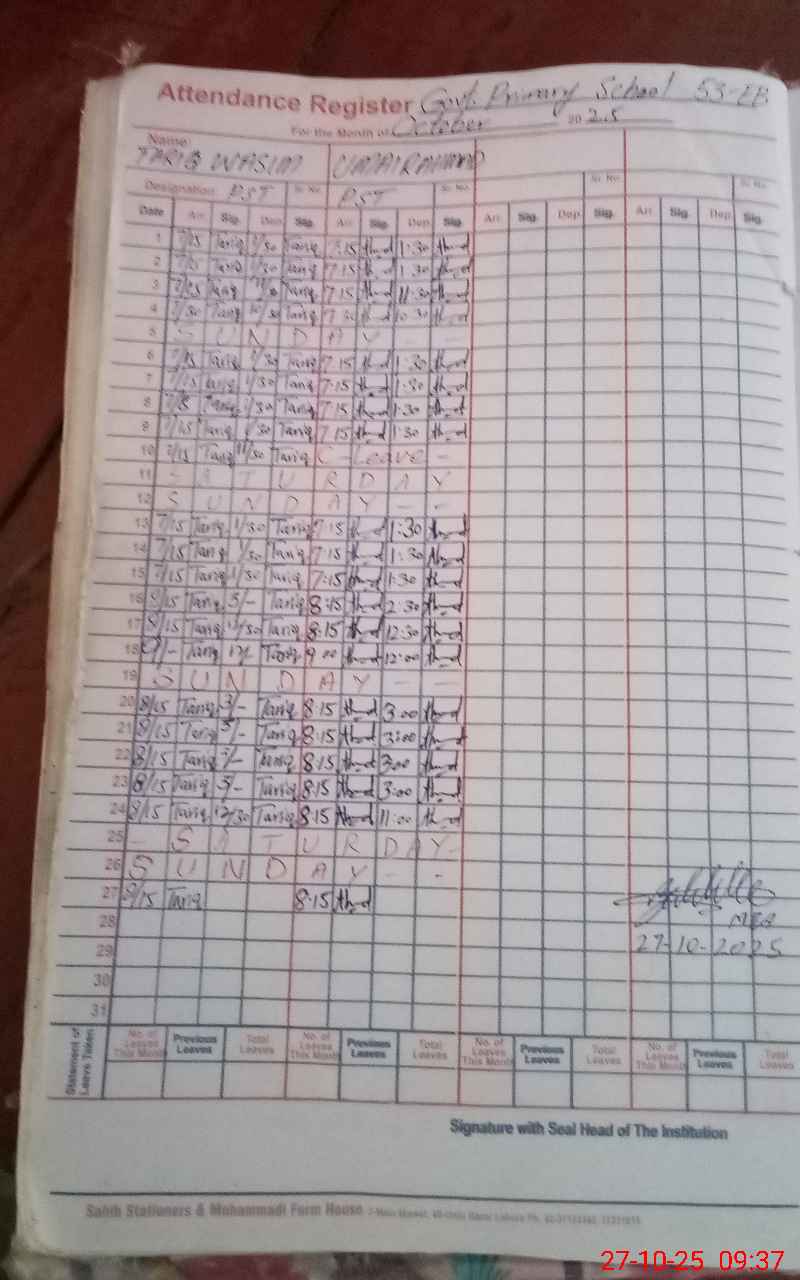 Attendance Register Govt. Primary School 53-EB
For the Month of October 2025
Name:
TARIQ WASIM UMAIR AHMAD
Designation PST Sr. No. PST Sr. No. Sr. No. Sr. No.
Date Arr. Sig. Dep. Sig. Arr. Sig. Dep. Sig. Arr. Sig. Dep. Sig. Arr. Sig. Dep. Sig.
1 7/15 Tariq 1/30 Tariq 7:15 1:30
2 7/15 Tariq 1/30 Tariq 7:15 1:30
3 7/15 Tariq Tariq 7:15 11:30
4 7/30 Tariq 10/30 Tariq 7:30 10:30
5 S U N D A Y - -
6 7/15 Tariq 1/30 Tariq 7:15 1:30
7 7/15 Tariq 1/30 Tariq 7:15 1:30
8 7/15 Tariq 1/30 Tariq 7:15 1:30
9 7/15 Tariq 1/30 Tariq 7:15 1:30
10 7/15 Tariq 11/30 Tariq C-Leave -
11 - S A T U R D A Y
12 S U N D A Y - -
13 7/15 Tariq 1/30 Tariq 7:15 1:30
14 7/15 Tariq 1/30 Tariq 7:15 1:30
15 7/15 Tariq 1/30 Tariq 7:15 1:30
16 8/15 Tariq 3/- Tariq 8:15 2:30
17 8/15 Tariq 12/30 Tariq 8:15 12:30
18 9/- Tariq 12/- Tariq 9:00 12:00
19 S U N D A Y - -
20 8/15 Tariq 3/- Tariq 8:15 3:00
21 8/15 Tariq 3/- Tariq 8:15 3:00
22 8/15 Tariq 3/- Tariq 8:15 3:00
23 8/15 Tariq 3/- Tariq 8:15 3:00
24 8/15 Tariq 12/30 Tariq 8:15 11:00
25 - S A T U R D A Y -
26 S U N D A Y - -
27 8/15 Tariq 8:15
28 MEA
29 27-10-2025
30
31
Statement of Leave Taken
No. of Leaves This Month Previous Leaves Total Leaves No. of Leaves This Month Previous Leaves Total Leaves No. of Leaves This Month Previous Leaves Total Leaves No. of Leaves This Month Previous Leaves Total Leaves
Signature with Seal Head of The Institution
Sahib Stationers & Muhammadi Form House
27-10-25 09:37